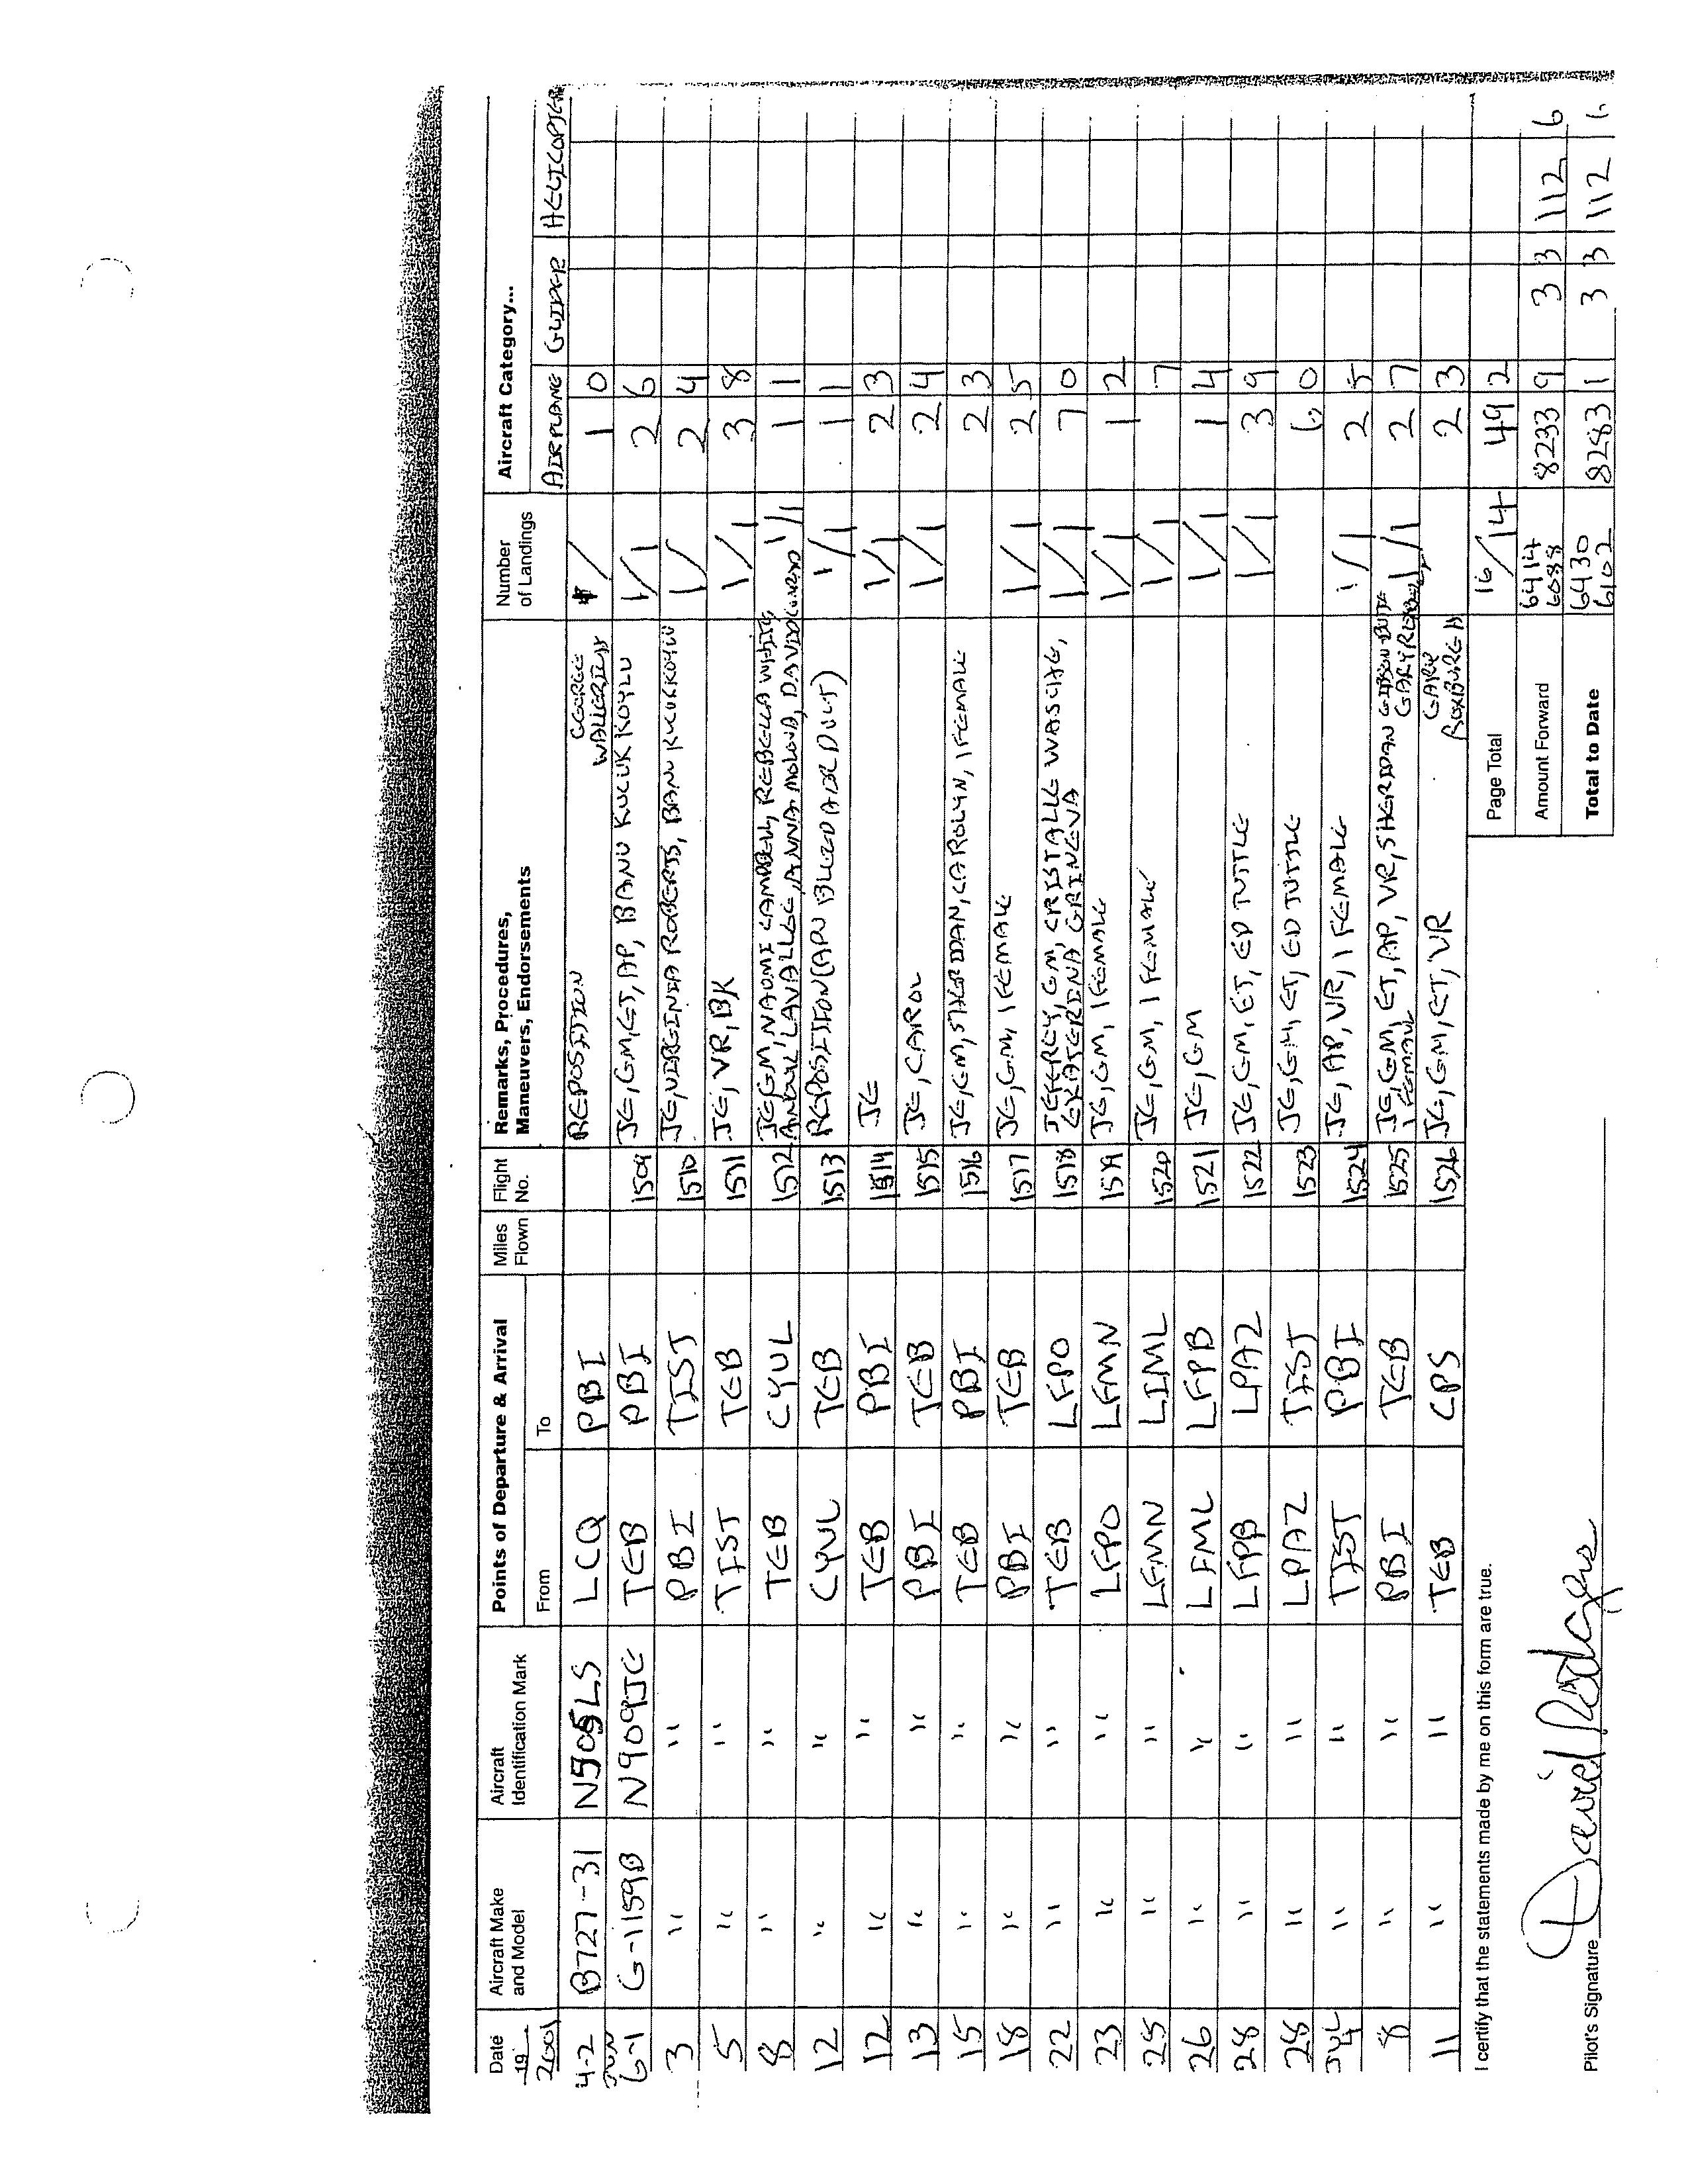 Date 19 2001 Aircraft Make and Model Aircraft Identification Mark Points of Departure & Arrival From To Miles Flown Flight No. Remarks, Procedures, Maneuvers, Endorsements Number of Landings Aircraft Category... AIRPLANE GLIDER HELICOPTER
4-2 B727-31 N908LS LCQ PBI REPOSITION GEORGE 1 0
JUN 6-1 G-1159B N909JE TEB PBI 1509 JE, GM, ET, AP, BANU KUCUKKOYLU 1/1 2 6
3 " " PBI TIST 1510 JE, VIRGINIA ROBERTS, BANU KUCUKKOYLU 1/ 2 4
5 " " TIST TEB 1511 JE, VR, BK 1/1 3 8
8 " " TEB CYUL 1512 JE, GM, NAOMI CAMPBELL, REBECCA WHITE, LAVALLEE, ANNA 1/1 1 1
12 " " CYUL TEB 1513 REPOSITION (APU BLEED AIR DUCT) 1/1 1 1
12 " " TEB PBI 1514 JE 1/1 2 3
13 " " PBI TEB 1515 JE, CAROL 1/1 2 4
15 " " TEB PBI 1516 JE, GM, SHERIDAN, CAROLYN, 1 FEMALE 2 3
18 " " PBI TEB 1517 JE, GM, 1 FEMALE 1/1 2 5
22 " " TEB LFPO 1518 JEFFREY, GM, CRISTALLE WASCHE, EKATERINA GRINEVA 1/1 7 0
23 " " LFPO LFMN 1519 JE, GM, 1 FEMALE 1/1 1 2
25 " " LFMN LIML 1520 JE, GM, 1 FEMALE 1/1 7
26 " " LIML LFPB 1521 JE, GM 1/1 1 4
28 " " LFPB LPAZ 1522 JE, GM, ET, ED TUTTLE 1/1 3 9
28 " " LPAZ TIST 1523 JE, GM, ET, ED TUTTLE 6 0
JUL 4 " " TIST PBI 1524 JE, AP, VR, 1 FEMALE 1/1 2 5
8 " " PBI TEB 1525 JE, GM, ET, AP, VR, SHERIDAN GIBSON-BUTTE 1 FEMALE GARY 1/1 2 7
11 " " TEB CPS 1526 JE, GM, ET, VR GARY ROXBURGH 2 3
I certify that the statements made by me on this form are true.
Page Total 16/14 49 2
Amount Forward 6414 6088 8233 9 3 3 112 6
Pilot's Signature David Rodgers
Total to Date 6430 6102 8283 1 3 3 112